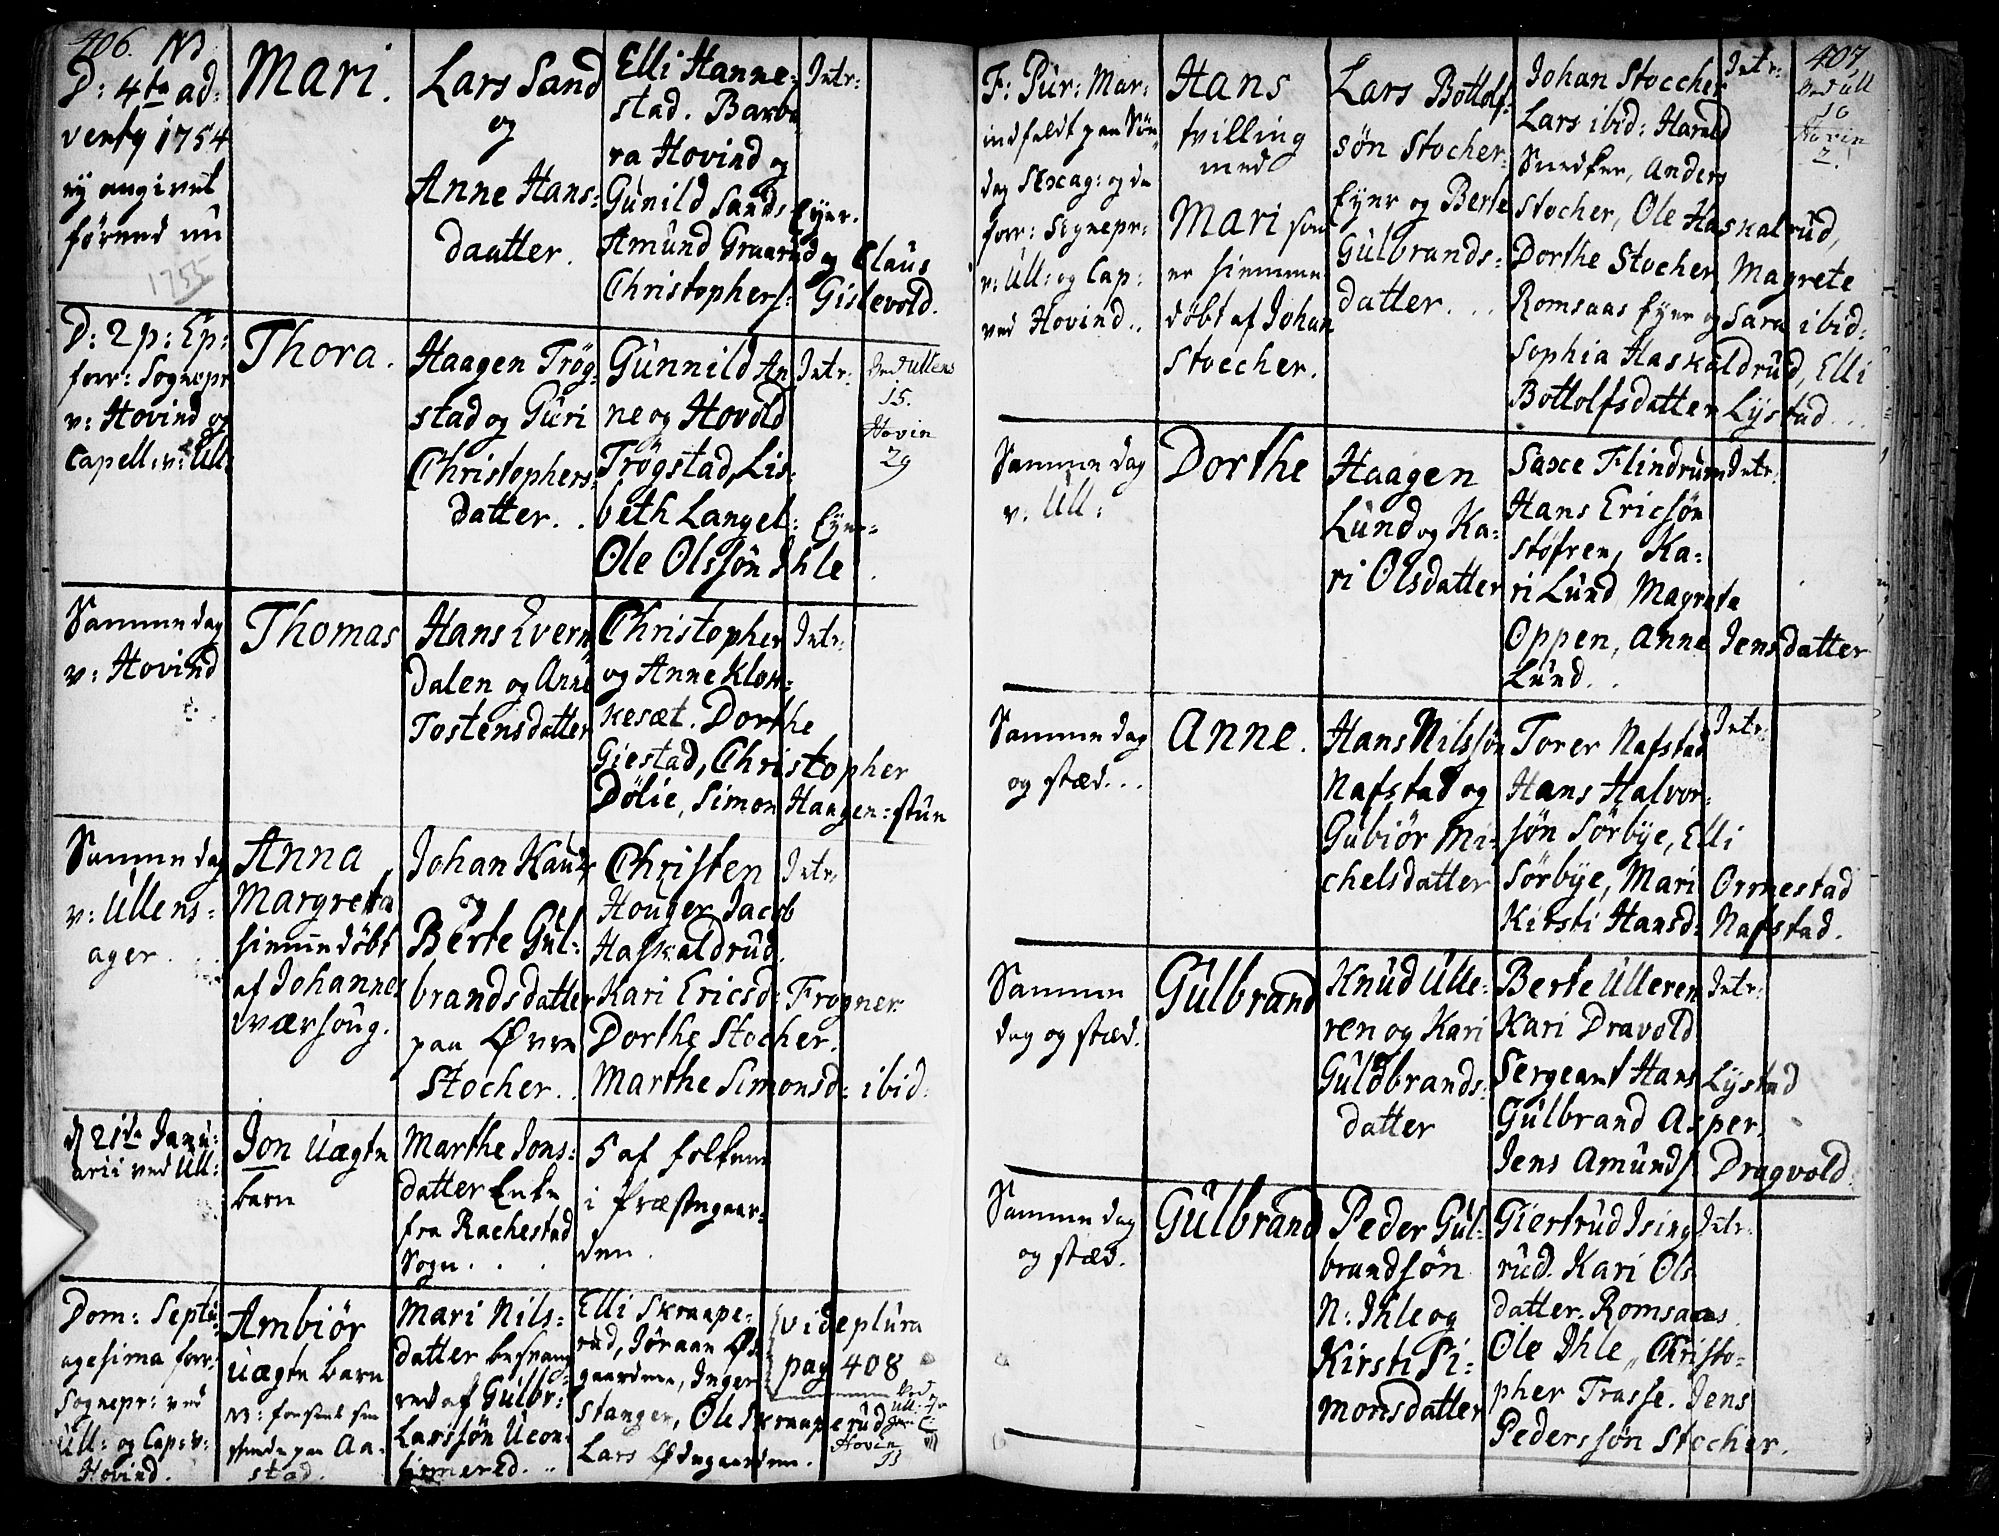 406. NB
D: 4te ad:
venty 1754
ey angivet
förend nu
1755
Mari.
Lars Sand
og
Anne Hans-
daatter.
Elli Hanne-
stad. Barba-
ra Hovind og
Gunild Sands Eyer.
Amund Graarud og Claus
Christophers: Gislevold.
Intr:
D: 2 p: Ep:
forr: Sognepr
v: Hovind og
Capell: v: Ull:
Thora.
Haagen Trög-
stad og Guri
Christophers-
datter. .
Gunnild An
ne og Hovold
Trögstad, Lis-
beth Langel: Eyer-
Ole Olssön Ihle.
Intr:
Ved Ullens
15.
Hovin
29
Samme dag
v: Hovind
Thomas
Hans Evern
Dalen og Anne
Tostensdatter
Christopher
og Anne Klom-
kesæt. Dorthe
Giestad, Christopher
Dölie, Simon Haagen: stun
Intr:
Samme dag
v: Ullens-
ager.
Anna
Margreta
hiemedöbt
af Johannes
Wærhoug.
Johan Kauds
og
Berte Gul-
brandsdatter
paa Øvre
Stocher. .
Christen
Houger Jacob
Haskaldrud.
Kari Ericsd: Frogner.
Dorthe Stocher.
Marthe Simonsd: ibid:
Intr:
d 21de Janu-
arii ved Ull:
Jon uægte
barn
Marthe Jons-
datter Enke
fra Rachestad
Sogn. . .
5 af folkene
i Præstegaar-
den.
Dom: Septu-
agesima forr:
Sognepr: ved
Ull: og Cap: v:
Hovind.
Ambiör
uægte barn
NB: forhen sin
stande paa Aa-
stad.
Mari Nils-
datter besvang
red af Gulbr:
Larssön Ucon-
firmered. ..
Elli Skraape-
rud, Jöraan Øde
gaardene, Inger
Stanger, Ole Skraaperud
Lars Ødegaardene.
vide plura
pag 408
Hovin
13
407
F: Pur: Mar:
indfaldt paa Søn
dag Sexag: og da
forr: Sognepr:
v: Ull: og Cap:
ved Hovind..
Hans
tvilling
med
Mari som
er hiemme
döbt af Johan
Stoecher.
Lars Bottolf-
søn Stocher-
Eyer og Berte
Gulbrands-
datter...
Johan Stoccher
Lars ibid: Harald
Smedker, Anders
Stocher, Ole Haskalrud,
Dorthe Stocher, Magrete
Romsaas Eyer og Sara ibid:
Sophia Haskaldrud, Elli
Bottolfsdatter Lystad...
Intr:
Ved Ull
16
Hovin
2.
Samme dag
v. Ull:
Dorthe
Haagen
Lund og Ka-
ri Olsdatter
Saxe Flindrum
Hans Ericsön
Stöfren, Ka-
ri Lund Magrete
Oppen, Anne Jensdatter
Lund..
Intr:
Samme dag
og stæd...
Anne.
Hans Nilssön
Nafstad og
Gubiör Mi-
chelsdatter
Torer Nafstad
Hans Halvor-
søn Sörbye, Elli
Sörbye, Mari Ormestad
Kirsti Hansd: Nafstad.
Intr:
Samme
dag og stæd.
Gulbrand
Knud Ulle-
ren og Kari
Guldbrands-
datter
Berte Ulleren
Kari Dravold
Sergeant Hans Lystad
Gulbrand Asper,
Jens Amunds Dragvold.
Intr:
Samme dag
og stæd.
Gulbrand
Peder Gul-
brandsön
N: Ihle og
Kirsti Si-
monsdatter
Giertrud Ising
rud. Kari Ols
datter Romsaas.
Ole Ihle, Christo-
pher Trasse. Jens
Pederssön Stocher.
Intr: